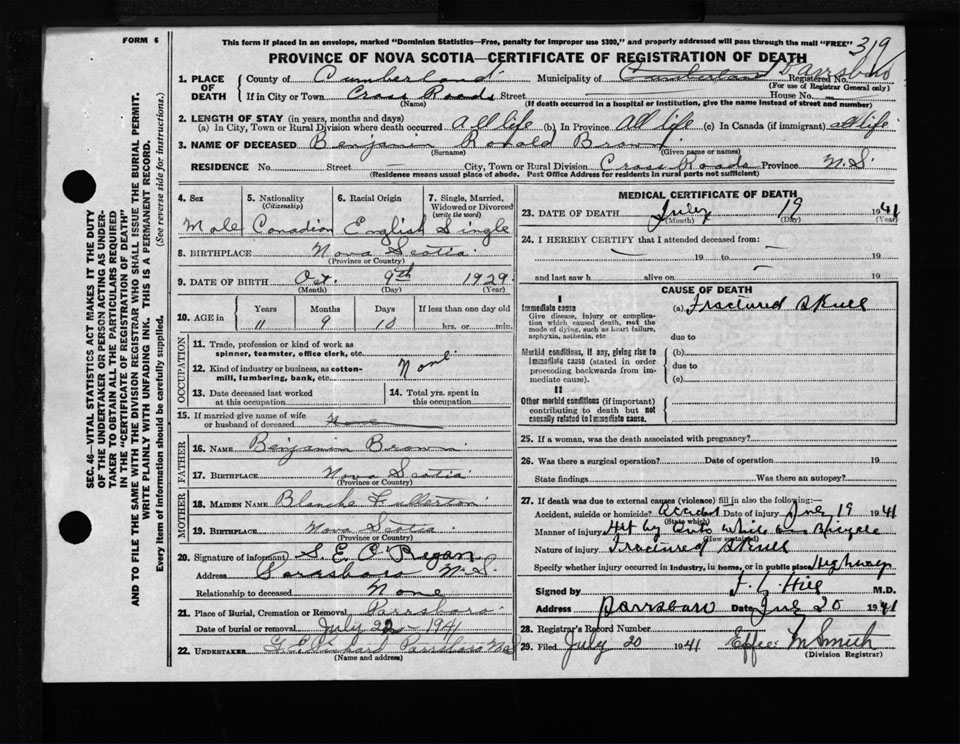 FORM 6
This form if placed in an envelope, marked "Dominion Statistics—Free, penalty for improper use $300," and properly addressed will pass through the mail "FREE"
319
PROVINCE OF NOVA SCOTIA—CERTIFICATE OF REGISTRATION OF DEATH
1. PLACE OF DEATH { County of Cumberland Municipality of Cumberland Parrsboro Registered No.
(For use of Registrar General only)
If in City or Town Cross Roads Street House No. —
(Name) (If death occurred in a hospital or institution, give the name instead of street and number)
2. LENGTH OF STAY (in years, months and days)
(a) In City, Town or Rural Division where death occurred all life (b) In Province all life (c) In Canada (if immigrant) all life
3. NAME OF DECEASED Benjamin Ronald Brown
(Surname) (Given name or names)
RESIDENCE No. Street City, Town or Rural Division Cross Roads Province N.S.
(Residence means usual place of abode. Post Office Address for residents in rural parts not sufficient)
4. Sex 5. Nationality (Citizenship) 6. Racial Origin 7. Single, Married, Widowed or Divorced (write the word)
Male Canadian English Single
8. BIRTHPLACE Nova Scotia
(Province or Country)
9. DATE OF BIRTH Oct. 9th 1929
(Month) (Day) (Year)
10. AGE in { Years Months Days If less than one day old
11 9 10 hrs. or min.
OCCUPATION
11. Trade, profession or kind of work as spinner, teamster, office clerk, etc.
12. Kind of industry or business, as cotton-mill, lumbering, bank, etc. None
13. Date deceased last worked at this occupation
14. Total yrs. spent in this occupation
15. If married give name of wife or husband of deceased None
FATHER
16. NAME Benjamin Brown
17. BIRTHPLACE Nova Scotia
(Province or Country)
MOTHER
18. MAIDEN NAME Blanche Fullerton
19. BIRTHPLACE Nova Scotia
(Province or Country)
20. Signature of informant S. E. O'Regan
Address Parrsboro N.S.
Relationship to deceased None
21. Place of Burial, Cremation or Removal Parrsboro
Date of burial or removal July 22 - 1941
22. UNDERTAKER Parrsboro N.S.
(Name and address)
MEDICAL CERTIFICATE OF DEATH
23. DATE OF DEATH July 19 1941
(Month) (Day) (Year)
24. I HEREBY CERTIFY that I attended deceased from: —
19 to 19
and last saw h alive on 19
CAUSE OF DEATH
I
Immediate cause (a) Fractured Skull
Give disease, injury or complication which caused death, not the mode of dying, such as heart failure, asphyxia, asthenia, etc
due to
Morbid conditions, if any, giving rise to immediate cause (stated in order proceeding backwards from immediate cause).
(b)
due to
(c)
II
Other morbid conditions (if important) contributing to death but not causally related to immediate cause.
25. If a woman, was the death associated with pregnancy?
26. Was there a surgical operation? Date of operation 19
State findings Was there an autopsy?
27. If death was due to external causes (violence) fill in also the following:—
Accident, suicide or homicide? Accident Date of injury July 19 1941
(State which)
Manner of injury Hit by Auto while on Bicycle
(How sustained)
Nature of injury Fractured Skull
Specify whether injury occurred in industry, in home, or in public place Highway
Signed by F. L. Hill M.D.
Address Parrsboro Date July 20 1941
28. Registrar's Record Number
29. Filed July 20 1941 Effie M Smith
(Division Registrar)
SEC. 46—VITAL STATISTICS ACT MAKES IT THE DUTY
OF THE UNDERTAKER OR PERSON ACTING AS UNDER-
TAKER TO OBTAIN ALL THE PARTICULARS REQUIRED
IN THE "CERTIFICATE OF REGISTRATION OF DEATH"
AND TO FILE THE SAME WITH THE DIVISION REGISTRAR WHO SHALL ISSUE THE BURIAL PERMIT.
WRITE PLAINLY WITH UNFADING INK. THIS IS A PERMANENT RECORD.
Every item of information should be carefully supplied. (See reverse side for instructions.)